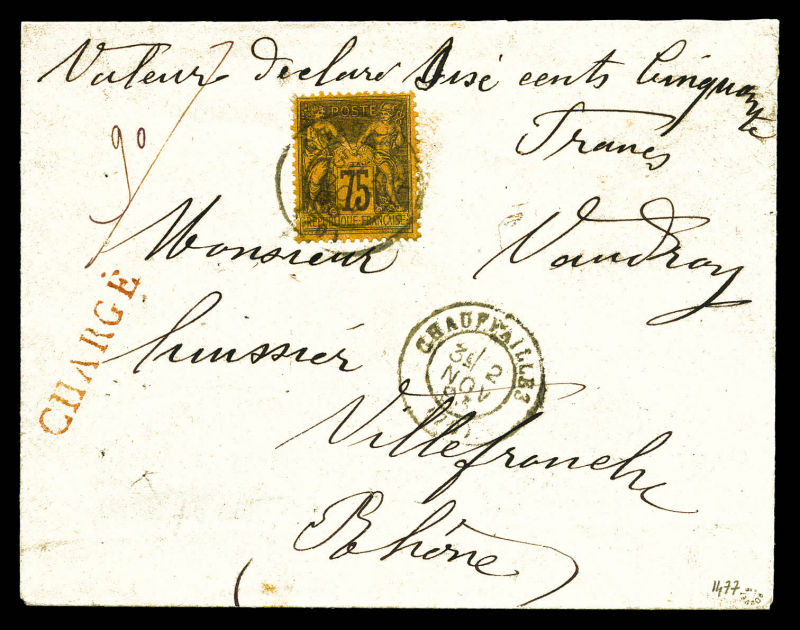 Valeur déclaré Sise cents Cinquante
Francs
90
POSTE
75
REPUBLIQUE FRANÇAISE
Monsieur Vaudray
CHARGÉ
huissier
CHAUFFAILLES
3E 2
NOV
Villefranche
Rhône
1477